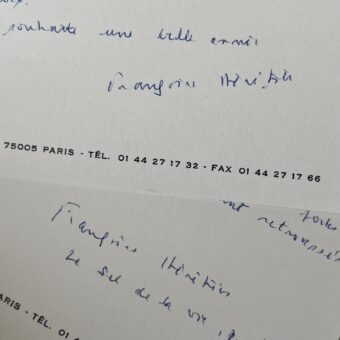 souhaite une belle année
Françoise Héritier
75005 PARIS - TÉL. 01 44 27 17 32 - FAX 01 44 27 17 66
retroussé
Françoise Héritier
Le sel de la vie,
PARIS - TÉL. 01 4